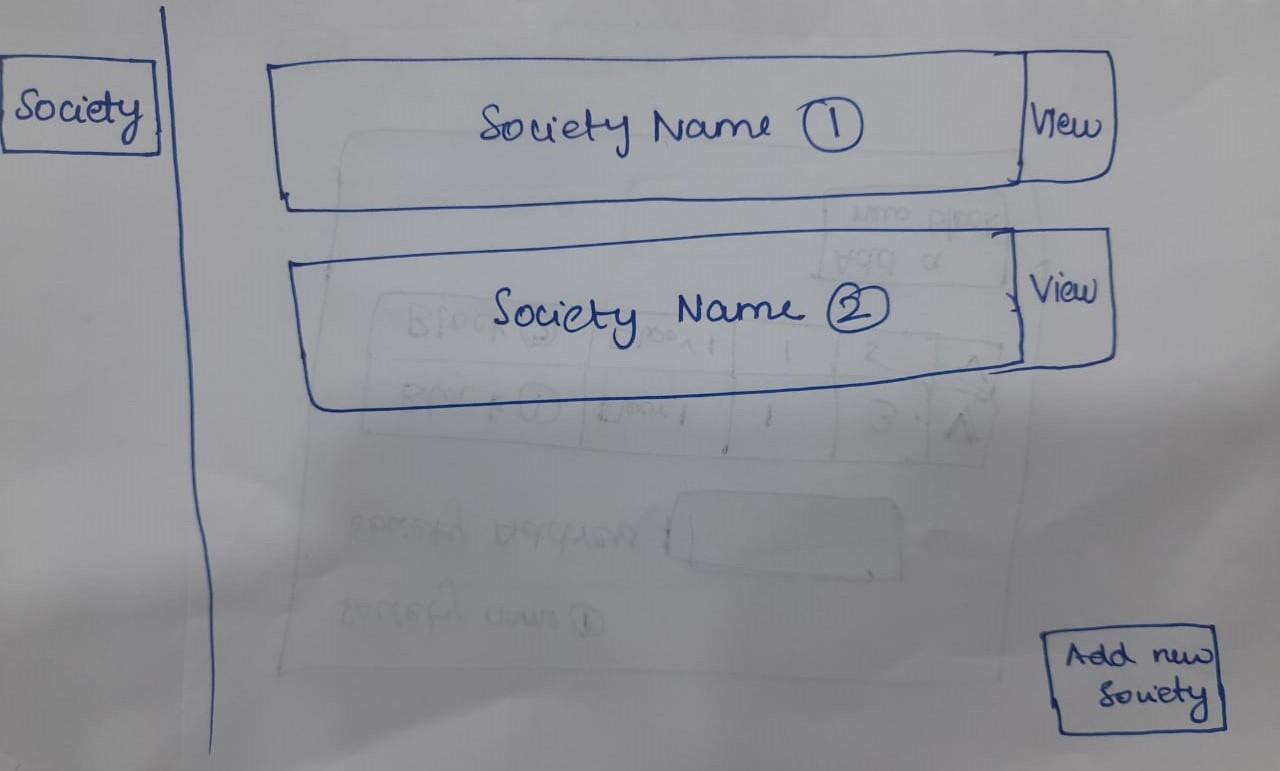 Society
Society Name 1
View
Society Name 2
View
Add new
Society